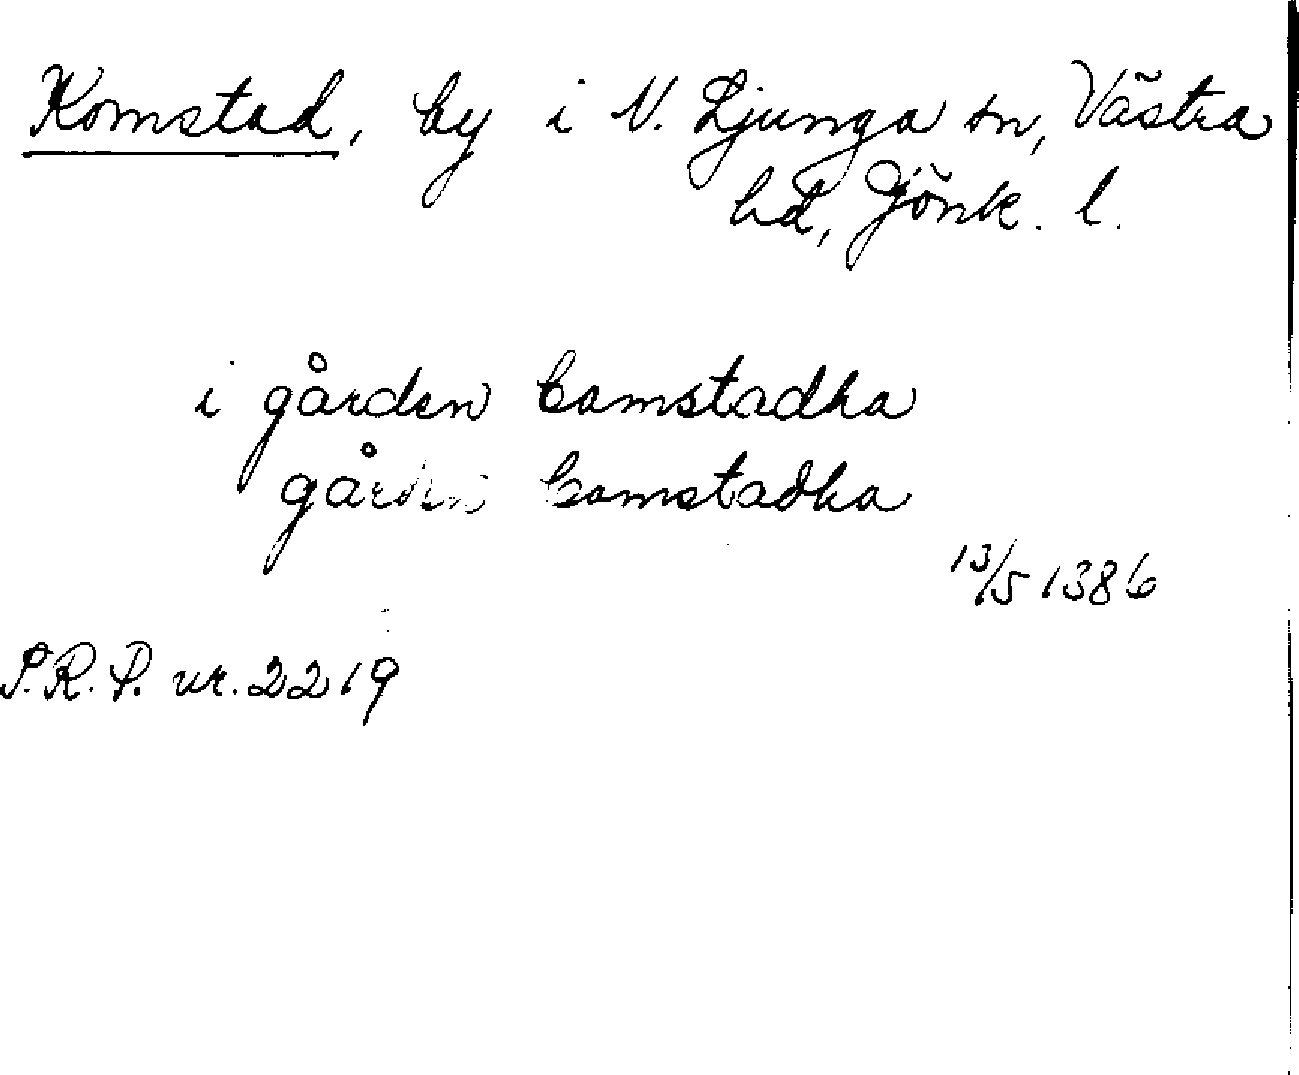 Komstad, by i N. Ljunga sn, Västra
hd, Jönk. l.
i gården Comstadha
gården Comstadha
13/5 1386
S.R.P. nr. 2219